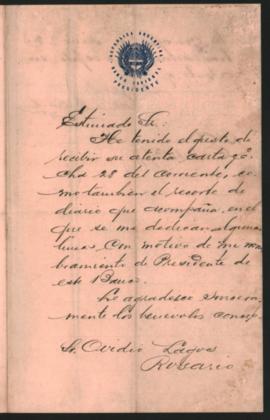 REPUBLICA ARGENTINA
BANCO NACIONAL
PRESIDENTE
Estimado Sr.:
He tenido el gusto de
recibir su atenta carta fe
cha 28 del corriente, co
mo tambien el recorte de
diario que acompaña, en
el que se me dedican algunas
lineas con motivo de mi nom
bramiento de Presidente de
este Banco.
Le agradezco sincera
mente los benevolos concep
Sr. Ovidio Lagos
Rosario